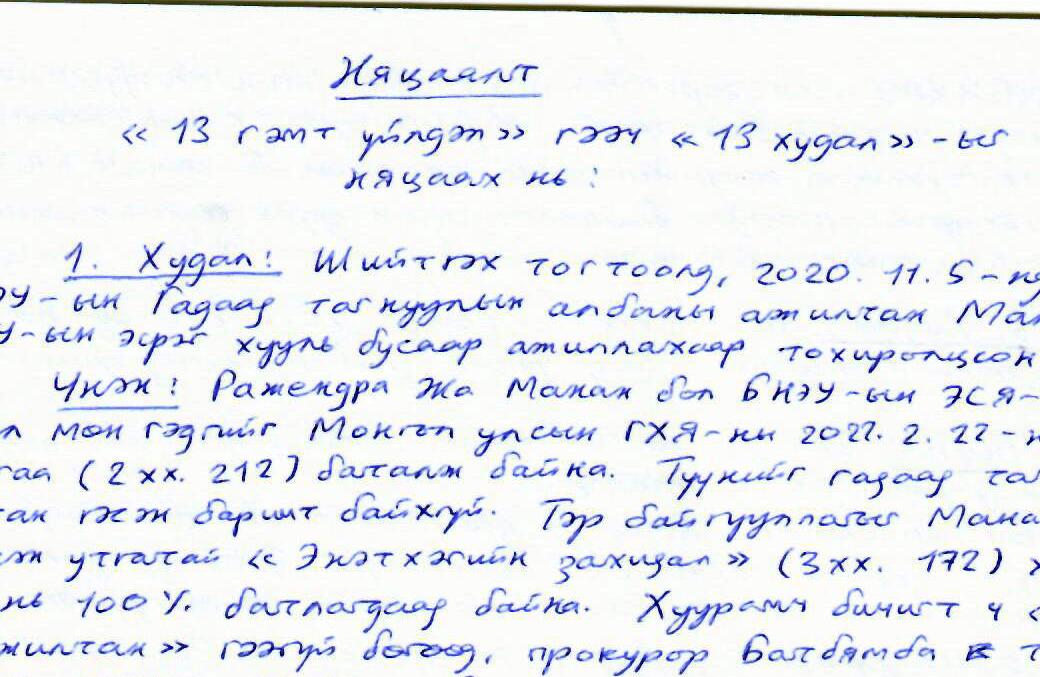 Няцаалт
«13 гэмт үйлдэл» гээч «13 худал»-ыг
няцаах нь:
1. Худал: Шийтгэх тогтоолд, 2020. 11. 5-нд
ЭУ-ын Гадаад тагнуулын албаны ажилтан Ман
У-ын эсрэг хууль бусаар ажиллахаар тохиролцсон
Үнэн: Ражендра Жа Манан бол БНЭУ-ын ЭСЯ-
л мөн гэдгийг Монгол улсын ГХЯ-ны 2022. 2. 22-н
гаа (2 хх. 212) баталж байна. Түүнийг гадаад таг
тан гэсэн баримт байхгүй. Тэр байгууллагыг Мана
эж утгатай «Энэтхэгийн захидал» (3 хх. 172) х
нь 100% батлагдаад байна. Хуурамч бичигт ч «
жилтан» гээгүй бөгөөд, прокурор Батбямба т